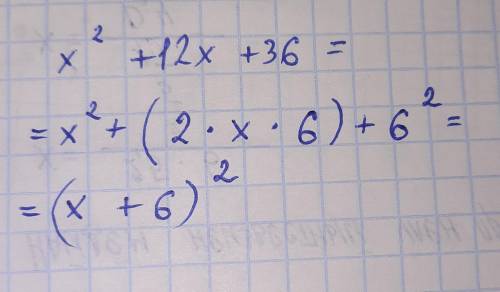 x² + 12x + 36 =
= x² + (2 · x · 6) + 6² =
= (x + 6)²